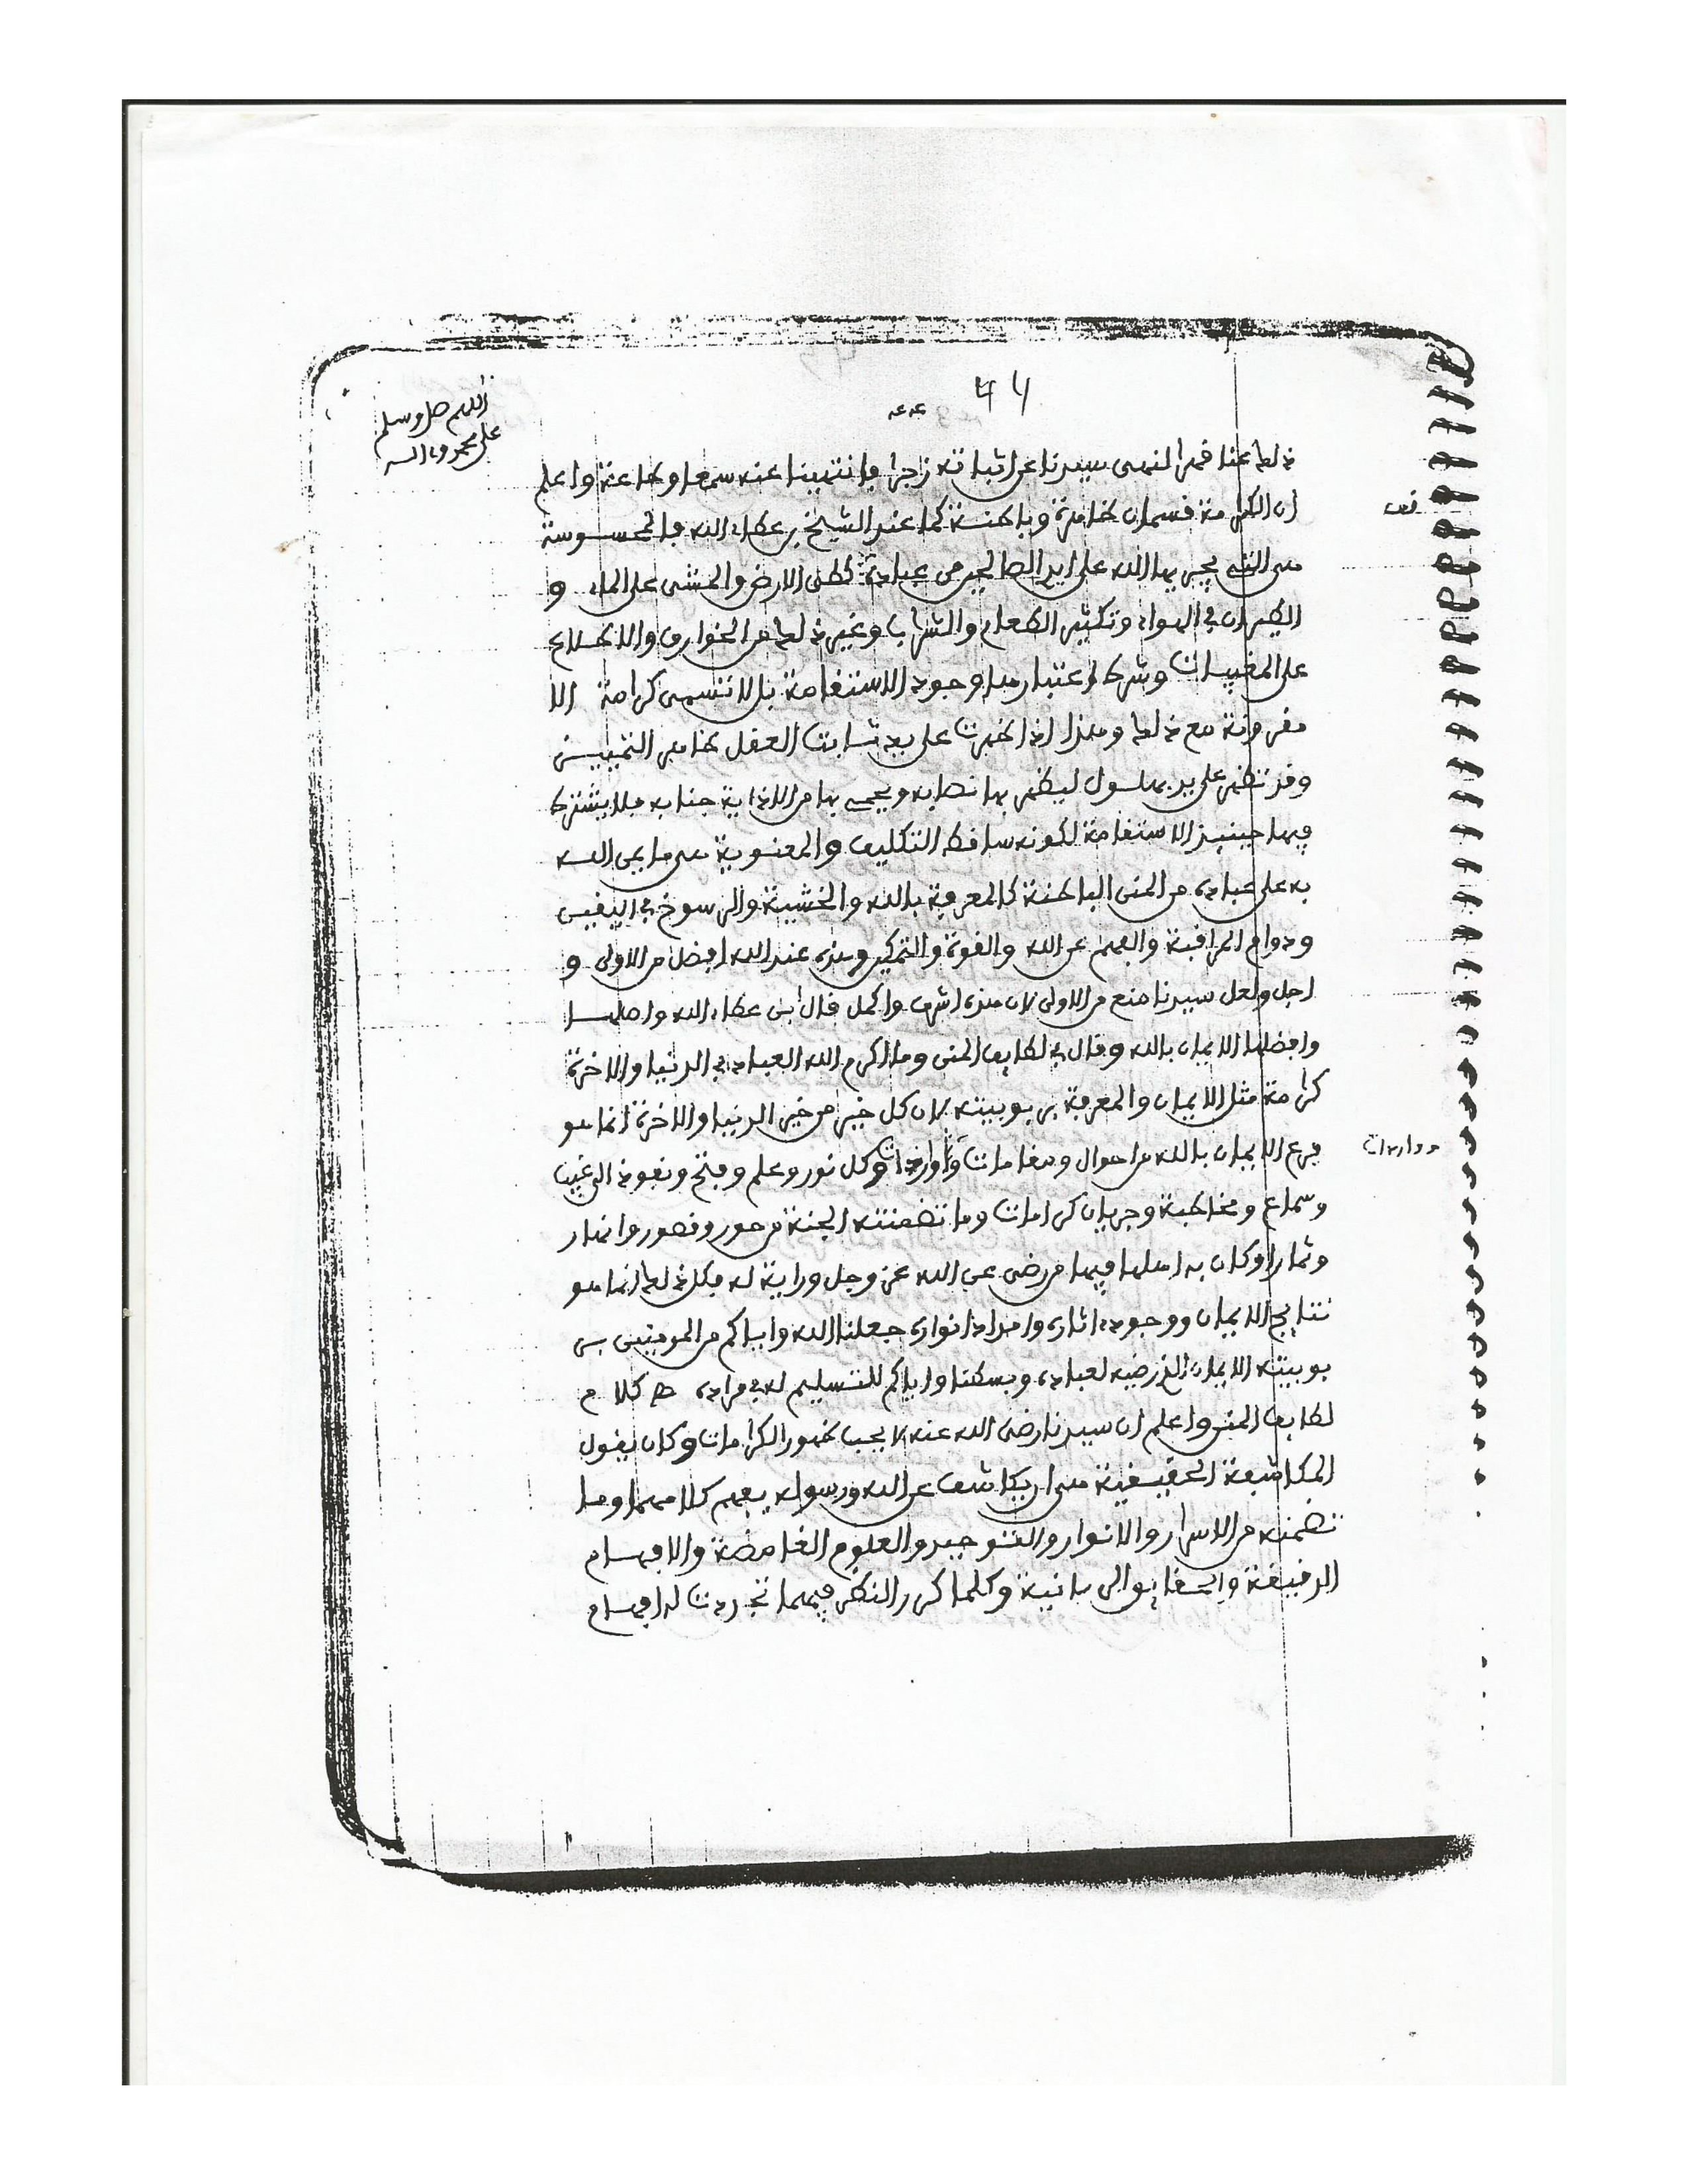 44
اللهم صل وسلم
على محمد وءاله
ذلك عنا فهرا لنهى سيدنا عن اثباته زجرا فانتهينا عنه سمعا وطاعة واعلم
ان الكرامة قسمان ظاهرة وباطنة كما عند الشيخ بن عطاء الله فالمحسوسة
هى التى يجريها الله على ايد الصالحين من عباده كطى الارض والمشى على الماء و
الطيران في الهواء وتكثير الطعام والشراب وغير ذلك من الخوارق والاطلاع
على المغيبات وشرط اعتبارها وجود الاستقامة بل لا تسمى كرامة الا
مقرونة مع ذلك وهذا اذا ظهرت على يد ثابت العقل ظاهر التمييز
وقد تظهر على يد بهلول ليظهر بها نصابه ويحمى بها من الاذاية جنابه فلا يشترط
فيها حينئذ الاستقامة لكونه ساقط التكليف والمعنوية هى ما يمن الله
به على عباده من المنن الباطنة كالمعرفة بالله والخشية والرسوخ في اليقين
ودوام المراقبة والفهم عن الله والقوة والتمكين وهذه عند الله افضل من الاولى و
اجل ولعل سيدنا منع من الاولى لان هذه اشرف واكمل قال ابن عطاء الله واصلها
وافضلها الايمان بالله وقال في لطايف المنن وما اكرم الله العباد في الدنيا والاخرة
كرامة مثل الايمان والمعرفة بربوبيته لان كل خير من خير الدنيا والاخرة انما هو
فرع الايمان بالله من احوال ومقامات وأوراد وكل نور وعلم وفتح ونفوذ الى غيب
وواردات
وسماع ومخاطبة وجريان كرامات وما تضمنته الجنة من حور وقصور وانهار
وثمار او كان به اهلها فيها من رضى عن الله عز وجل ورؤية له فكل ذلك انما هو
نتايج الايمان ووجود ءاثاره وامداد انواره جعلنا الله واياكم من المومنين بر
بوبيته الايمان الذى رضيه لعباده وبسطنا واياكم للتسليم له في مراده اهـ كلام
لطايف المنن واعلم ان سيدنا رضى الله عنه لا يحب ظهور الكرامات وكان يقول
المكاشفة الحقيقية هى ان يكاشف عن الله ورسوله بفهم كلامهما وما
تضمنه من الاسرار والانوار والتوحيد والعلوم الغامضة والافهام
الدقيقة والحقايق الربانية وكلما كرر النظر فيهما تجددت له افهام